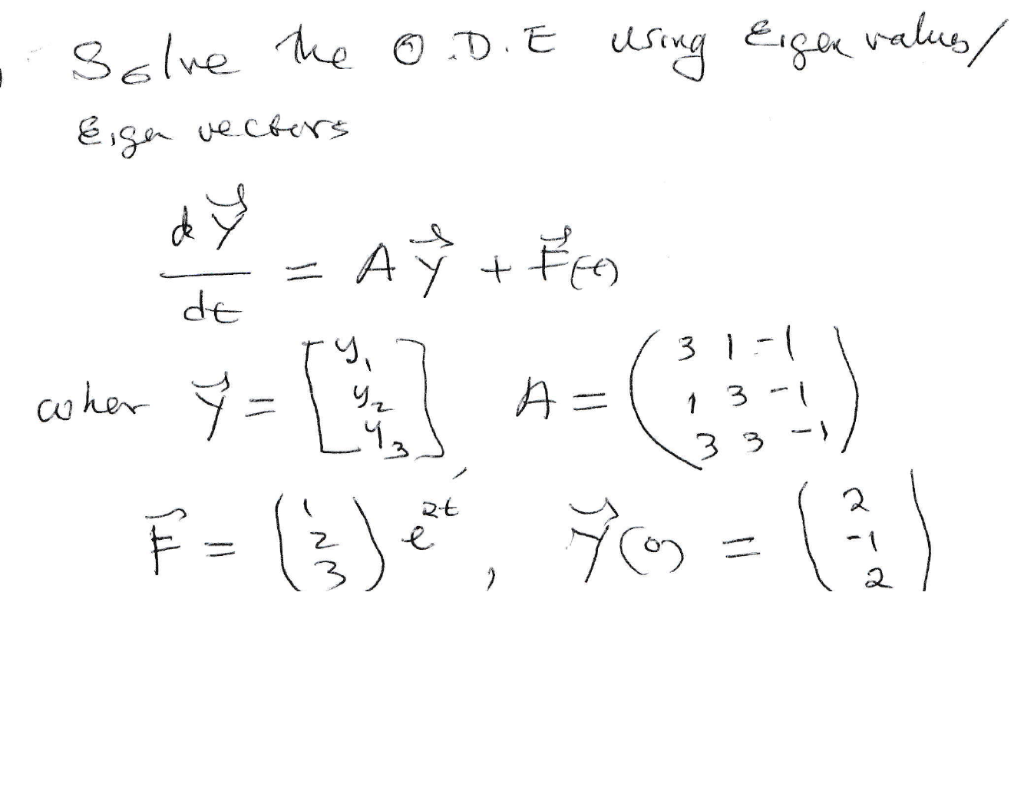 Solve the O.D.E using Eigen values/
Eigen vectors
dY⃗/dt = AY⃗ + F⃗(t)
wher Y⃗ = [y₁ y₂ y₃], A = (3 1 -1
1 3 -1
3 3 -1)
F⃗ = (1 2 3) e^2t, Y⃗(0) = (2 -1 2)